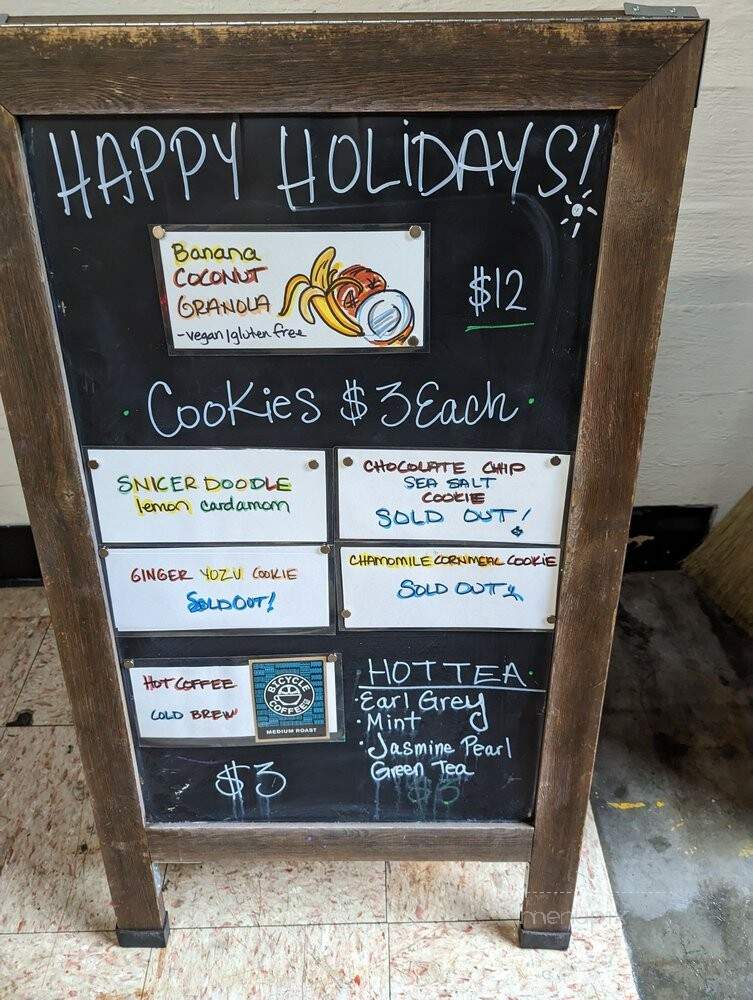 HAPPY HOLiDAYS!
Banana
COCONUT
GRANOLA
-vegan/gluten free
$12
· Cookies $3 Each ·
SNICER DOODLE
lemon cardamom
CHOCOLATE CHIP
SEA SALT
COOKIE
SOLD OUT!
GINGER YOZU COOKIE
SOLD OUT!
CHAMOMILE CORNMEAL COOKIE
SOLD OUT!
HOT COFFEE
COLD BREW
BICYCLE
COFFEE
MEDIUM ROAST
$3
HOT TEA
· Earl Grey
· Mint
· Jasmine Pearl
Green Tea
$3